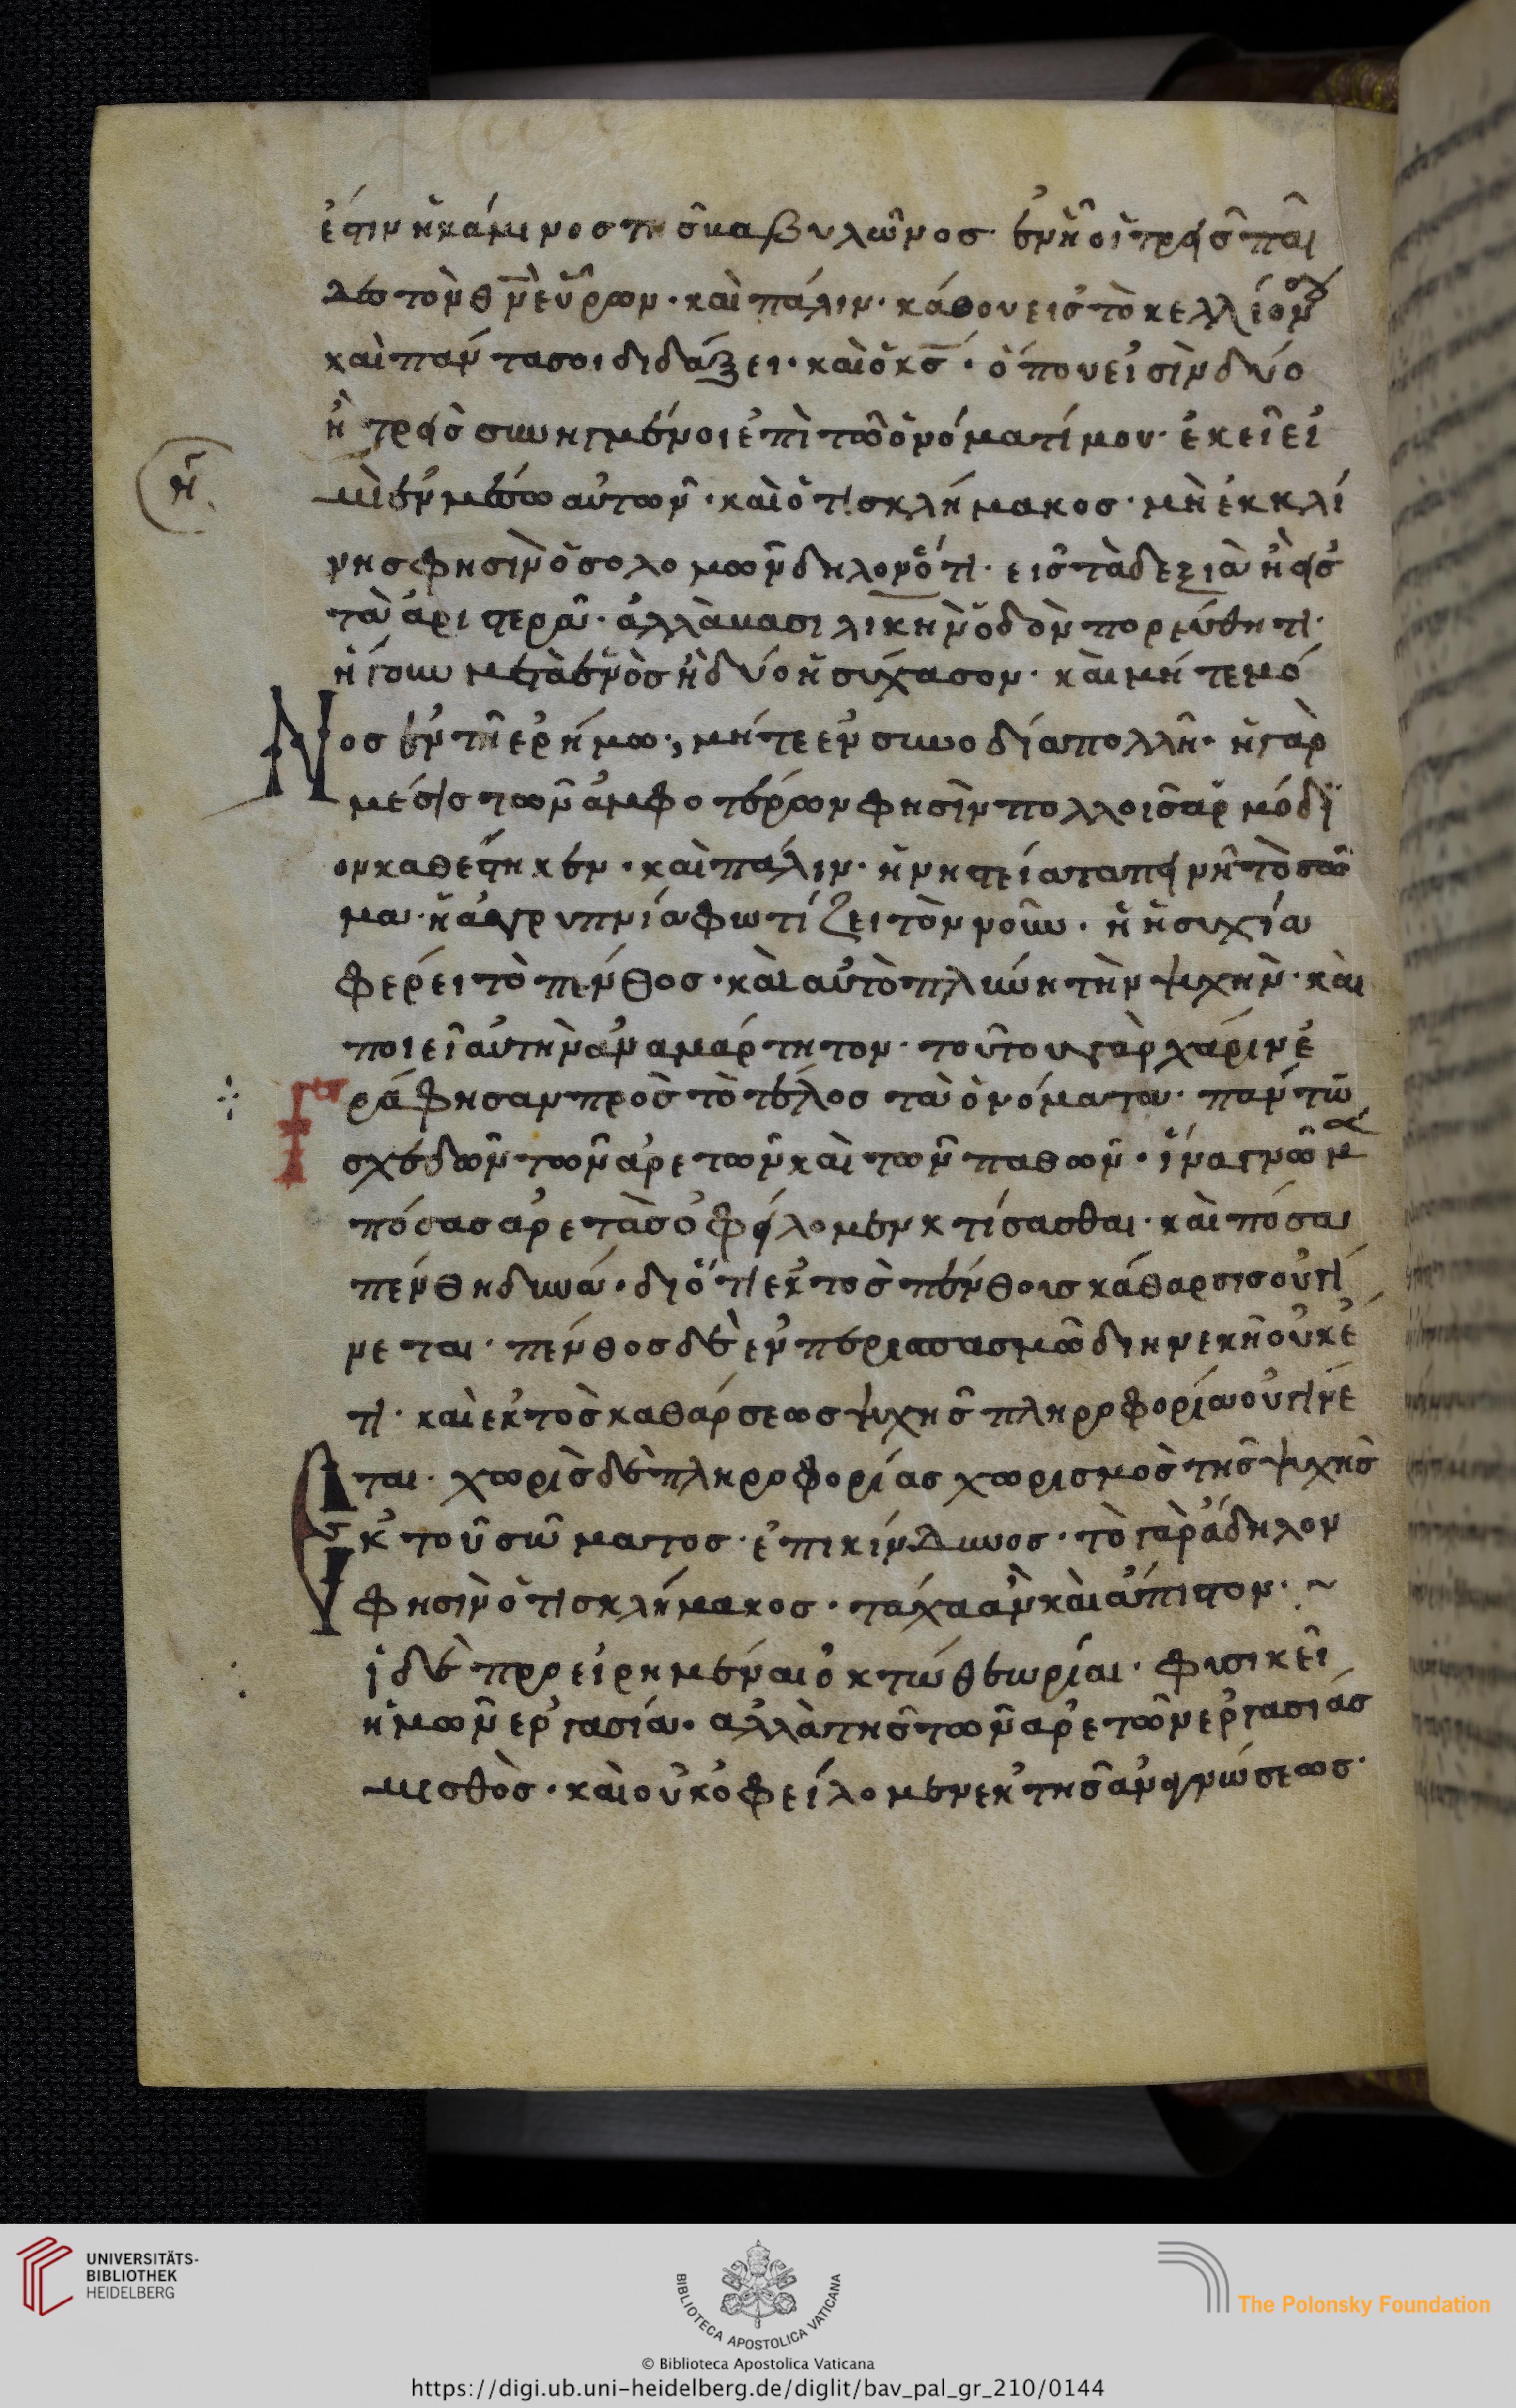 ἐστὶν ἡ κάμινος τῆς βαβυλῶνος· ἐν ᾗ οἱ τρεῖς παῖ
δες τὸν θν εὗρον· καὶ πάλιν· κάθου εἰς τὸ κελλίον σου
καὶ πάντα σοι διδάξει· καὶ ὁ κς· ὅπου εἰσὶν δύο
ἢ τρεῖς συνηγμένοι ἐπὶ τῶ ὀνόματί μου· ἐκεῖ εἰ
μὶ ἐν μέσω αὐτῶν· καὶ ὁ τῆς κλήμακος· μὴ ἐκκλί
νης φησὶν ὁ σολομῶν δηλονότι· εἰς τὰ δεξιὰ ἢ εἰς
τὰ ἀριστερά· ἀλλὰ βασιλικὴν ὁδὸν πορεύθητι·
ἤγουν μετὰ ἑνὸς ἢ δύο ἡσύχασον· καὶ μήτε μό
νος ἐν τῆ ἐρήμω, μήτε ἐν συνοδία πολλῆ· ἡ γὰρ
μέσις τῶν ἀμφοτέρων φησὶν πολλοῖς ἁρμόδι
ον καθέστηκεν· καὶ πάλιν· ἡ νηστεία ταπεινῆ τὸ σῶ
μα· ἡ ἀγρυπνία φωτίζει τὸν νοῦν· ἡ ἡσυχία
φέρει τὸ πένθος· καὶ αὐτὸ πλύνη τὴν ψυχὴν· καὶ
ποιεῖ αὐτὴν ἀναμάρτητον· τούτου γὰρ χάριν ἐ
γράφησαν πρὸς τὸ τέλος τὰ ὀνόματα· πάντων
σχεδῶν τῶν ἀρετῶν καὶ τῶν παθῶν· ἵνα γνῶμεν
πόσας ἀρετὰς ὀφείλομεν κτίσασθαι· καὶ πόσα
πένθη δεινά· διότι ἐκτὸς πένθους κάθαρσις οὐ γί
νεται· πένθος δὲ ἐν περισπασμῶ διηνεκῆ οὐκ ἔ
τι· καὶ ἐκτὸς καθάρσεως ψυχῆς πληροφορία οὐ γίνε
ται· χωρὶς δὲ πληροφορίας χωρισμὸς τῆς ψυχῆς
ἐκ τοῦ σώματος· ἐπικίνδυνος· τὸ γὰρ ἄδηλον
φησὶν ὁ τῆς κλήμακος· τάχα ἂν καὶ ἄπιστον· ~
Αἱ δὲ προειρημέναι ὀκτὼ θεωρίαι· οὐκ εἰσὶ
ἡμῶν ἐργασία· ἀλλὰ τῆς τῶν ἀρετῶν ἐργασίας
μισθὸς· καὶ οὐκ ὀφείλομεν ἐκ τῆς ἀναγνώσεως·
η
UNIVERSITÄTS-
BIBLIOTHEK
HEIDELBERG
BIBLIOTECA APOSTOLICA VATICANA
The Polonsky Foundation
© Biblioteca Apostolica Vaticana
https://digi.ub.uni-heidelberg.de/diglit/bav_pal_gr_210/0144